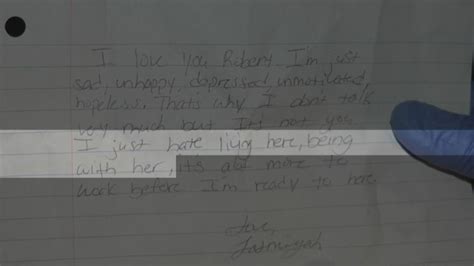 I love you Robert. I'm just
sad, unhappy, depressed, unmotivated,
hopeless. Thats why I don't talk
very much but It's not you
I just hate living here, being
with her, it's more to
work before I'm ready to
Love,